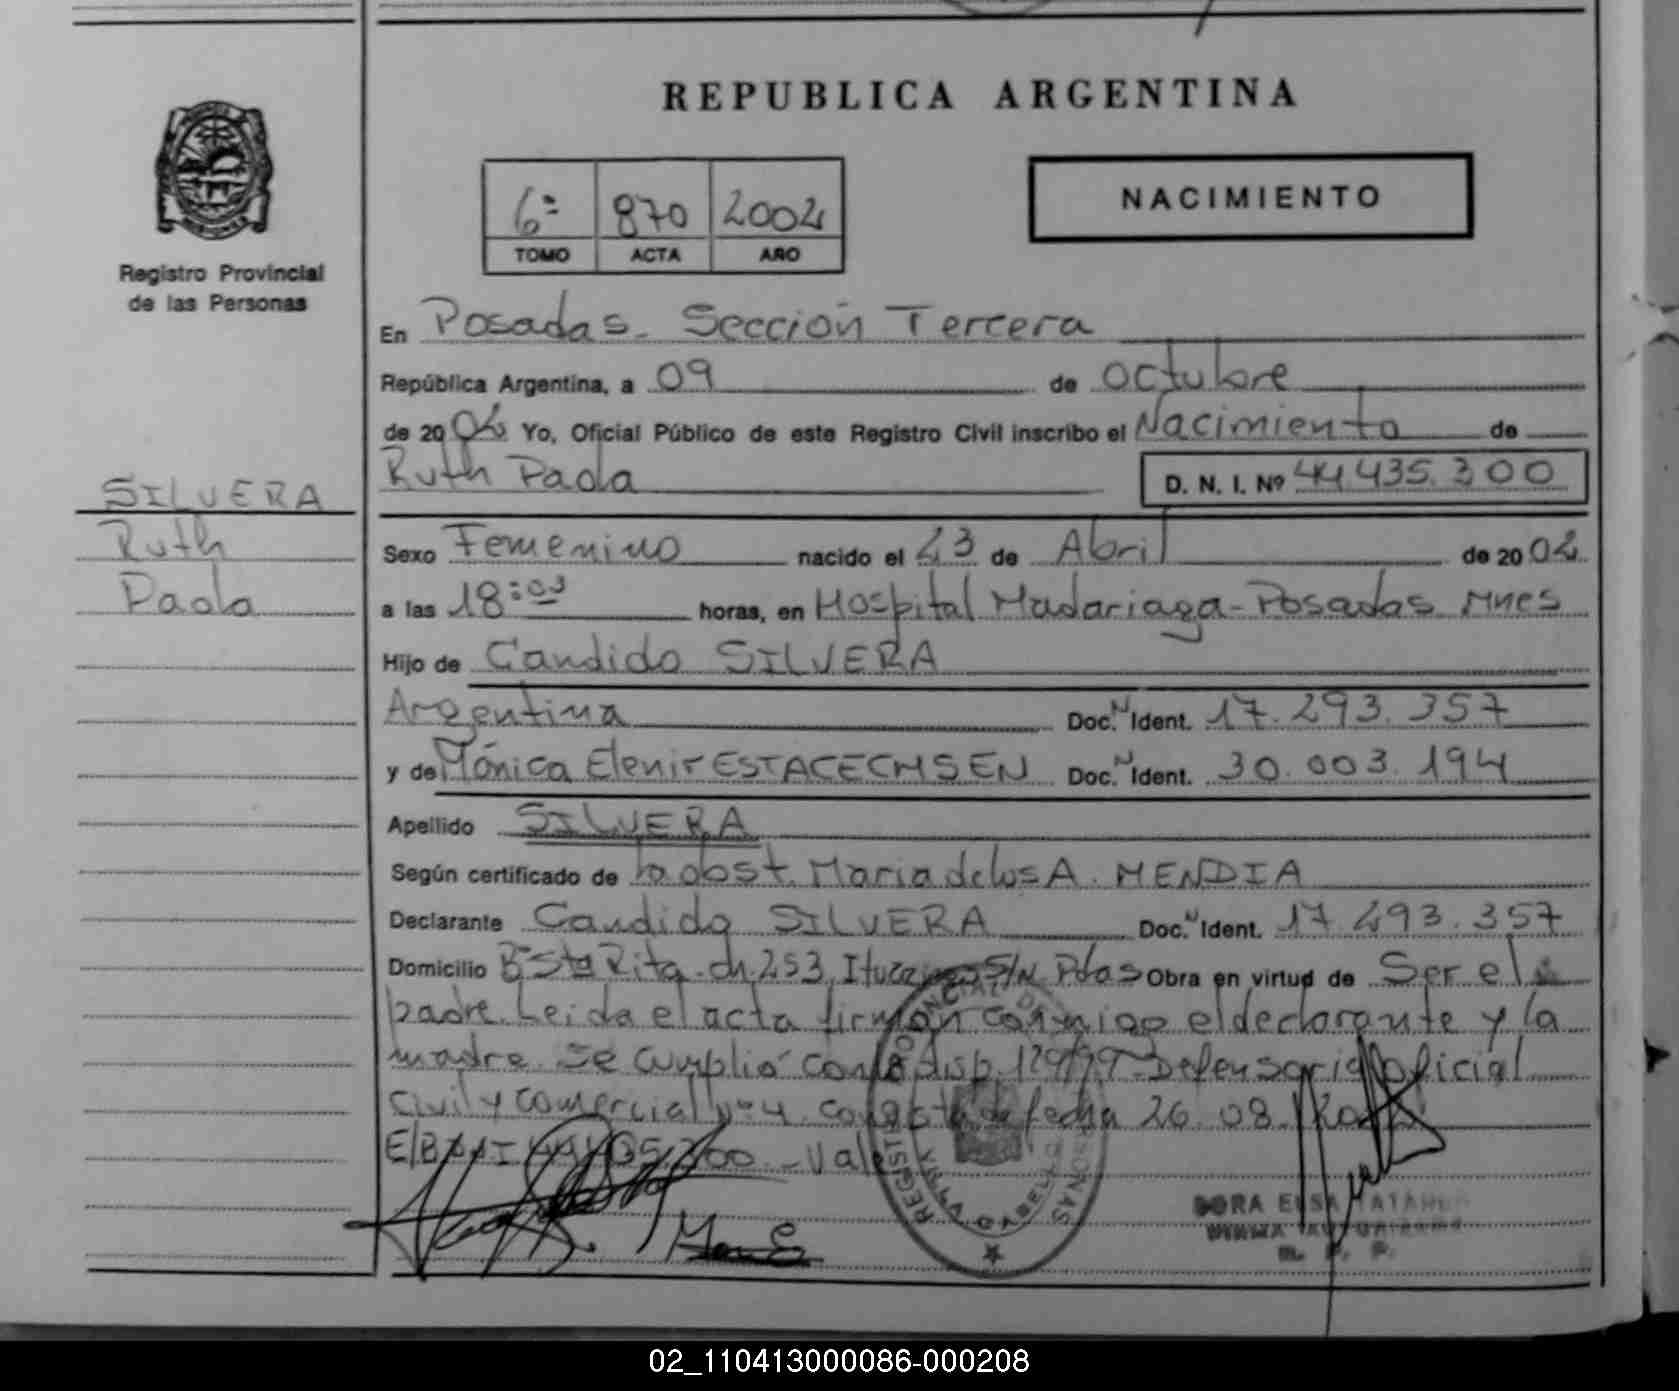 REPUBLICA ARGENTINA
6º 870 2002
TOMO ACTA AÑO
NACIMIENTO
Registro Provincial
de las Personas
En Posadas - Sección Tercera
República Argentina, a 09 de octubre
de 2002 Yo, Oficial Público de este Registro Civil inscribo el Nacimiento de
Ruth Paola D. N. I. Nº 44.435.300
SILVERA
Ruth
Paola
Sexo Femenino nacido el 23 de Abril de 2002
a las 18:03 horas, en Hospital Madariaga - Posadas Mnes
Hijo de Candido SILVERA
Argentina Doc. N Ident. 17.293.357
y de Mónica Elenir ESTACECHSEN Doc. N Ident. 30.003.194
Apellido SILVERA
Según certificado de la obst. Maria de los A. MENDIA
Declarante Candido SILVERA Doc. N Ident. 17.293.357
Domicilio Bº Sta Rita - ch. 253, S/N Pdas Obra en virtud de Ser el
padre. Leida el acta firman conmigo el declarante y la
madre. Se cumplió con la disp. 129/97 - Defensoria oficial
Civil y comercial Nº 4. fecha 26.08.
Vale
REGISTRO PROVINCIAL DE PERSONAS
DORA ELSA
02_110413000086-000208